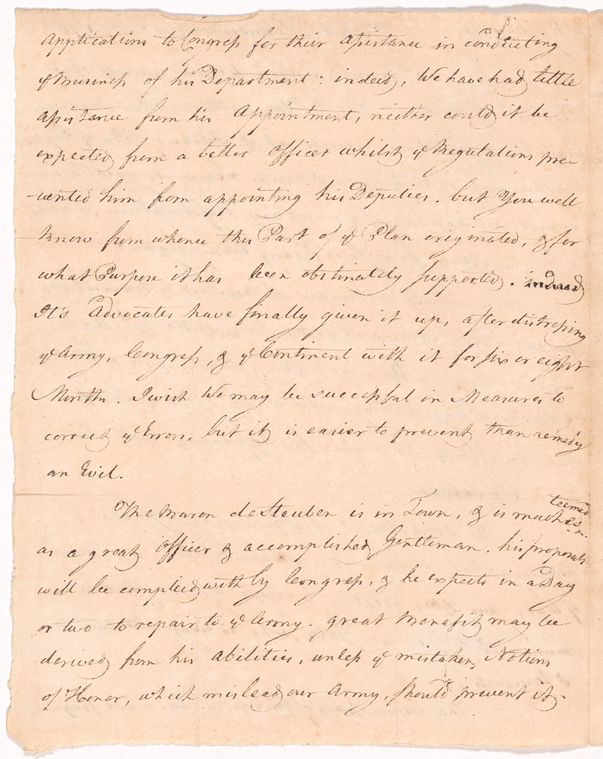 applications to Congress for their assistance in conducting
ye Business of his Department: indeed, We have had little
assistance from his Appointment, neither could it be
expected from a better Officer whilst ye Regulations pre-
-vented him from appointing his Deputies. but You well
know from whence this Part of ye Plan originated, & for
what Purpose it has been obstinately supported. indeed
It's Advocates have finally given it up, after distressing
ye Army, Congress, & ye Continent with it for six or eight
Months. I wish We may be successful in Measures to
correct ye Errors, but it is easier to prevent than remedy
an Evil.
The Baron de Steuben is in Town, & is much es-
teemed
as a great Officer & accomplished Gentleman. his proposals
will be complied with by Congress, & he expects in a Day
or two to repair to ye Army. great Benefit may be
derived from his abilities, unless ye mistaken Notions
of Honor, which mislead our Army, should prevent it.